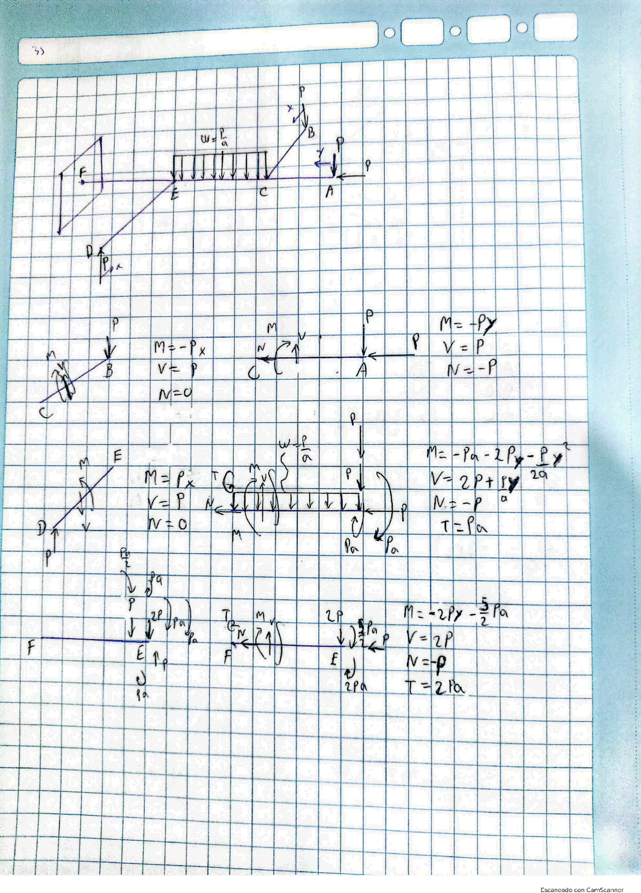 33
P
x
B
w=P/a
P
y
P
F
E
C
A
D
P
x
P
M
V
B
C
M = -Px
V = P
N = 0
P
M
V
N
P
C
A
M = -Py
V = P
N = -P
M
E
V
D
P
M = Px
V = P
N = 0
P
w=P/a
T
M
V
P
N
P
M
Pa
Pa
M = -Pa - 2Py - P/2a y²
V = 2P + Py/a
N = -P
T = Pa
Pa/2
Pa
P
2P
Pa
Pa
F
E
P
Pa
T
M
V
2P
5/2 Pa
P
N
F
E
2Pa
M = -2Py - 5/2 Pa
V = 2P
N = -P
T = 2Pa
Escaneado con CamScanner